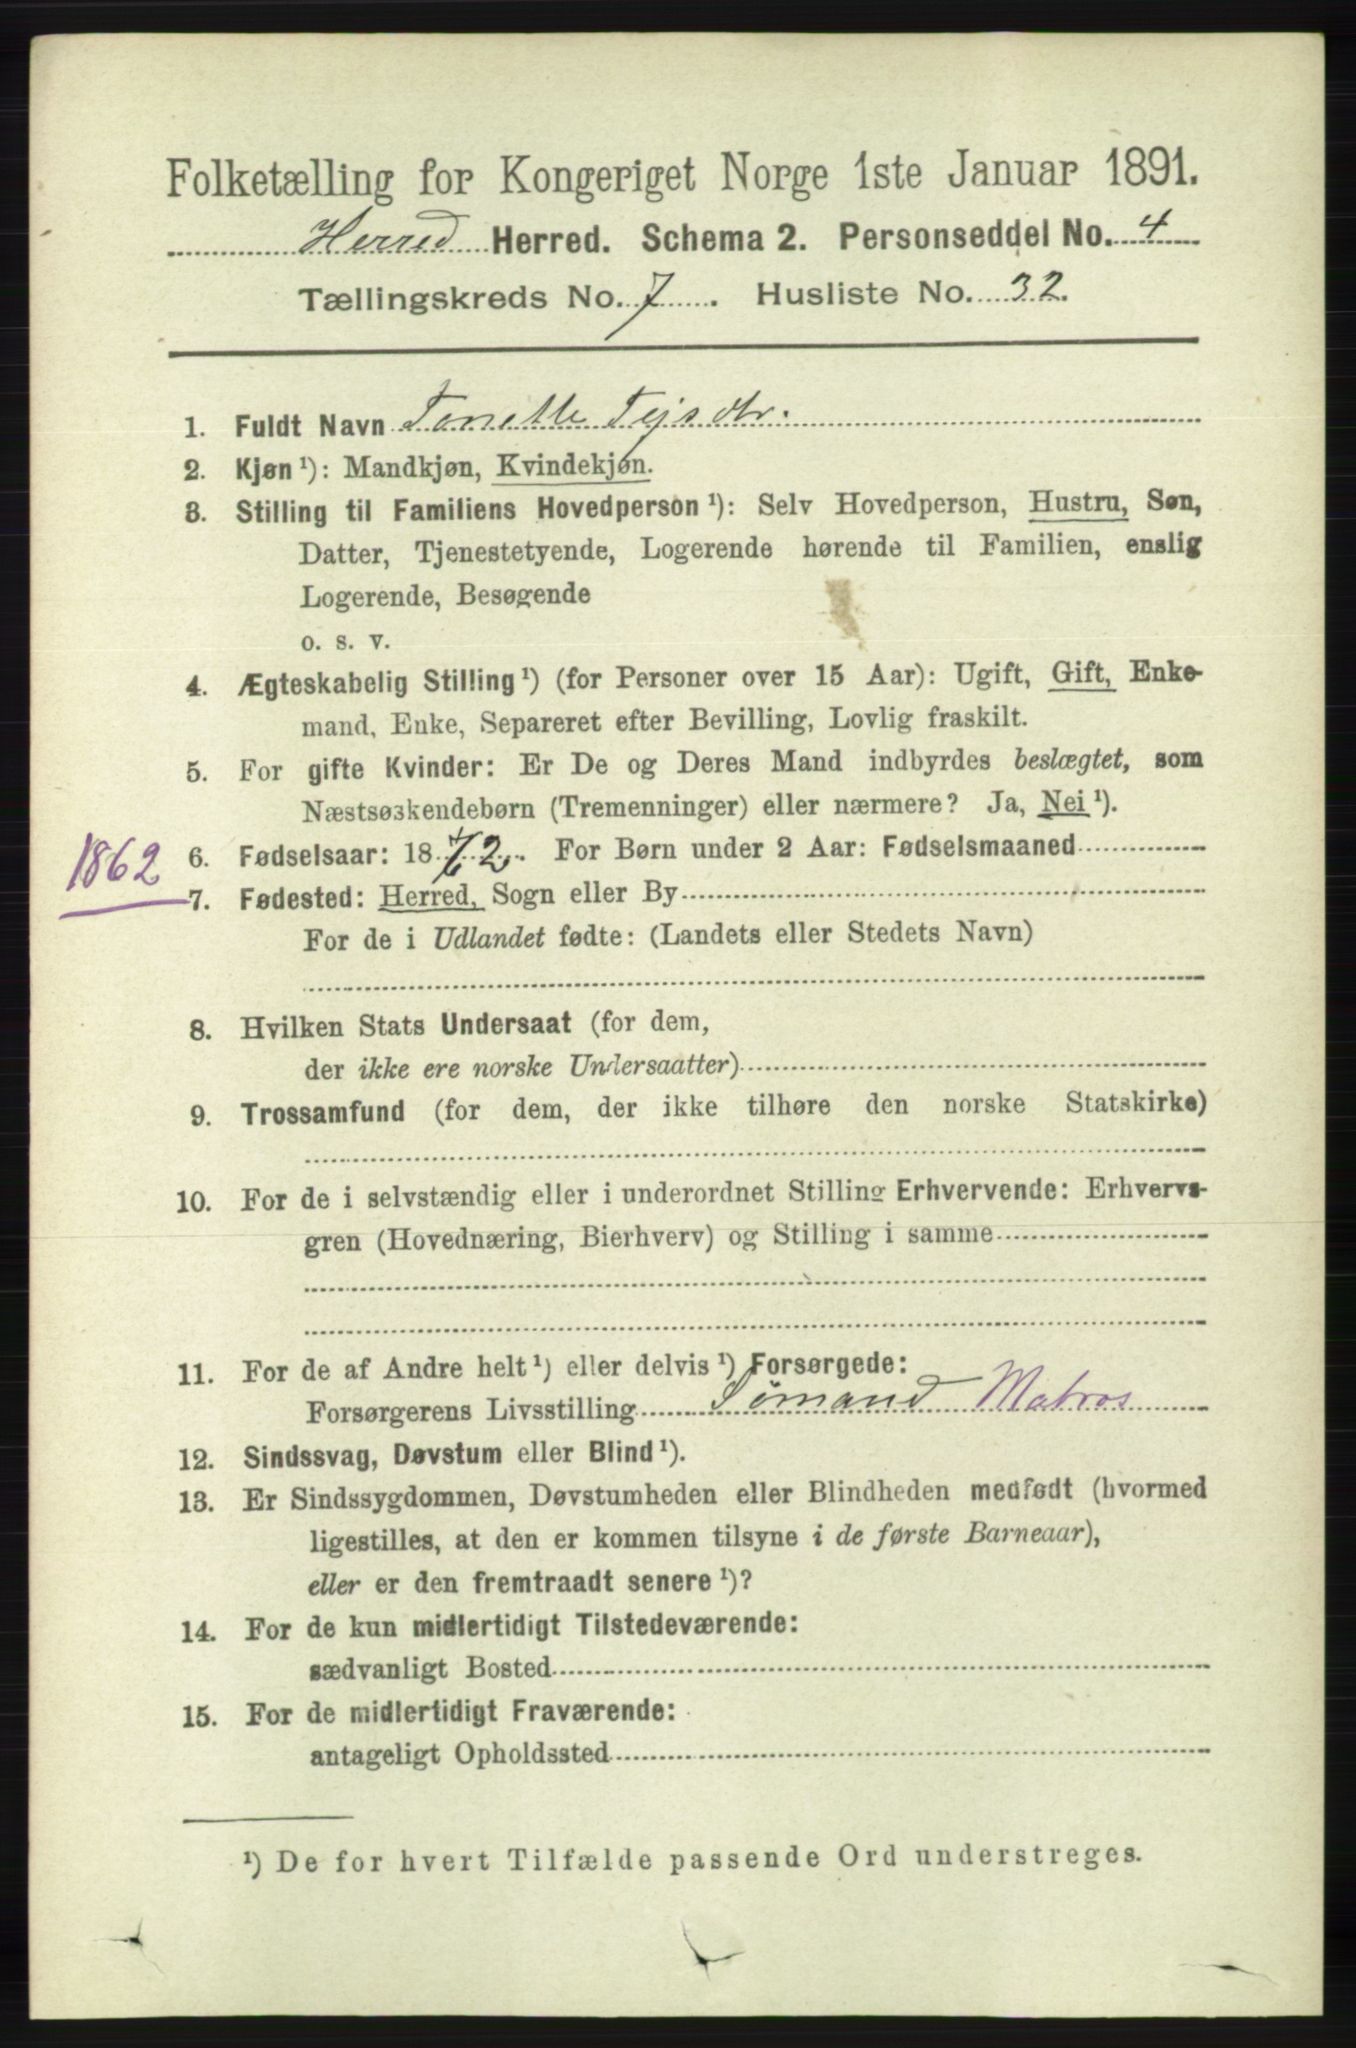 Folketælling for Kongeriget Norge 1ste Januar 1891.
Herred Herred. Schema 2. Personseddel No. 4
Tællingskreds No. 7. Husliste No. 32.
1. Fuldt Navn Tonette Tejsdtr.
2. Kjøn ¹): Mandkjøn, Kvindekjøn.
3. Stilling til Familiens Hovedperson ¹): Selv Hovedperson, Hustru, Søn,
Datter, Tjenestetyende, Logerende hørende til Familien, enslig
Logerende, Besøgende
o. s. v.
4. Ægteskabelig Stilling ¹) (for Personer over 15 Aar): Ugift, Gift, Enke-
mand, Enke, Separeret efter Bevilling, Lovlig fraskilt.
5. For gifte Kvinder: Er De og Deres Mand indbyrdes beslægtet, som
Næstsøskendebørn (Tremenninger) eller nærmere? Ja, Nei ¹).
1862
6. Fødselsaar: 1862. For Børn under 2 Aar: Fødselsmaaned
7. Fødested: Herred, Sogn eller By
For de i Udlandet fødte: (Landets eller Stedets Navn)
8. Hvilken Stats Undersaat (for dem,
der ikke ere norske Undersaatter)
9. Trossamfund (for dem, der ikke tilhøre den norske Statskirke)
10. For de i selvstændig eller i underordnet Stilling Erhvervende: Erhvervs-
gren (Hovednæring, Bierhverv) og Stilling i samme
11. For de af Andre helt ¹) eller delvis ¹) Forsørgede:
Forsørgerens Livsstilling Sømand Matros
12. Sindssvag, Døvstum eller Blind ¹).
13. Er Sindssygdommen, Døvstumheden eller Blindheden medfødt (hvormed
ligestilles, at den er kommen tilsyne i de første Barneaar),
eller er den fremtraadt senere ¹)?
14. For de kun midlertidigt Tilstedeværende:
sædvanligt Bosted
15. For de midlertidigt Fraværende:
antageligt Opholdssted
¹) De for hvert Tilfælde passende Ord understreges.